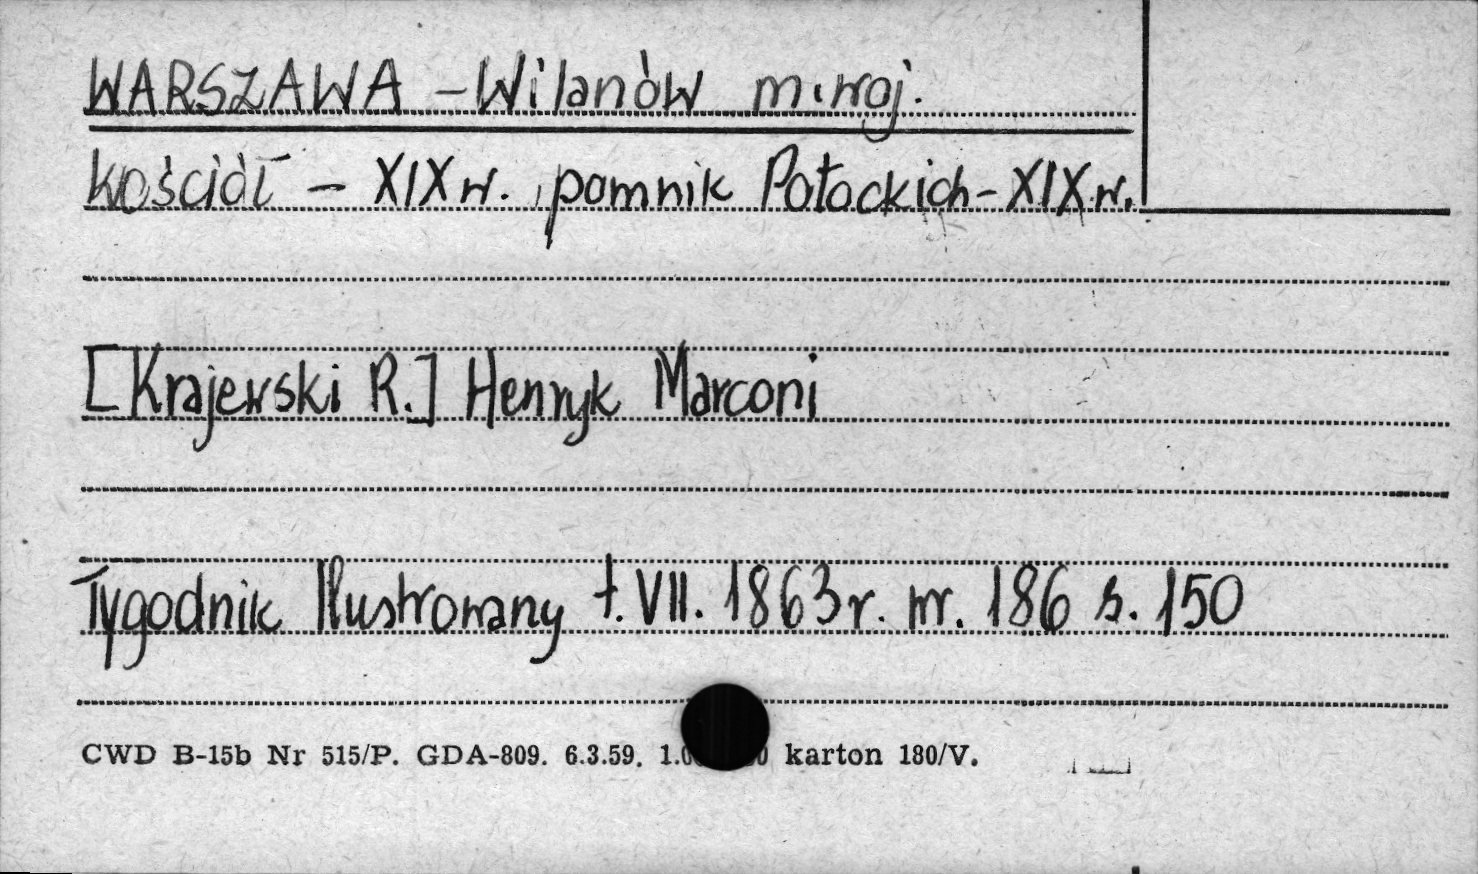 WARSZAWA – Wilanów m. woj.
kościół – XIX w., pomnik Potockich – XIX w.
[Krajewski R.] Henryk Marconi
Tygodnik Ilustrowany t. VII. 1863 r. nr. 186 s. 150
CWD B-15b Nr 515/P. GDA-809. 6.3.59. karton 180/V.